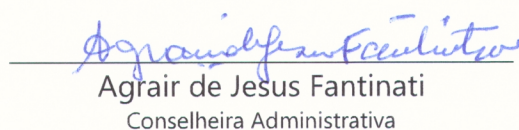 Agrair de Jesus Fantinati
Agrair de Jesus Fantinati
Conselheira Administrativa